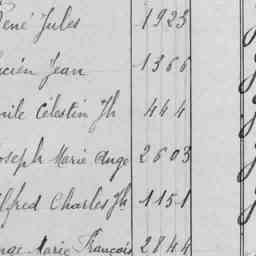 René Jules 1923
ucien Jean 1366
mile Célestin Jh 464
Joseph Marie Ange 2603
lfred Charles Jh 1151
nge Marie François 2844